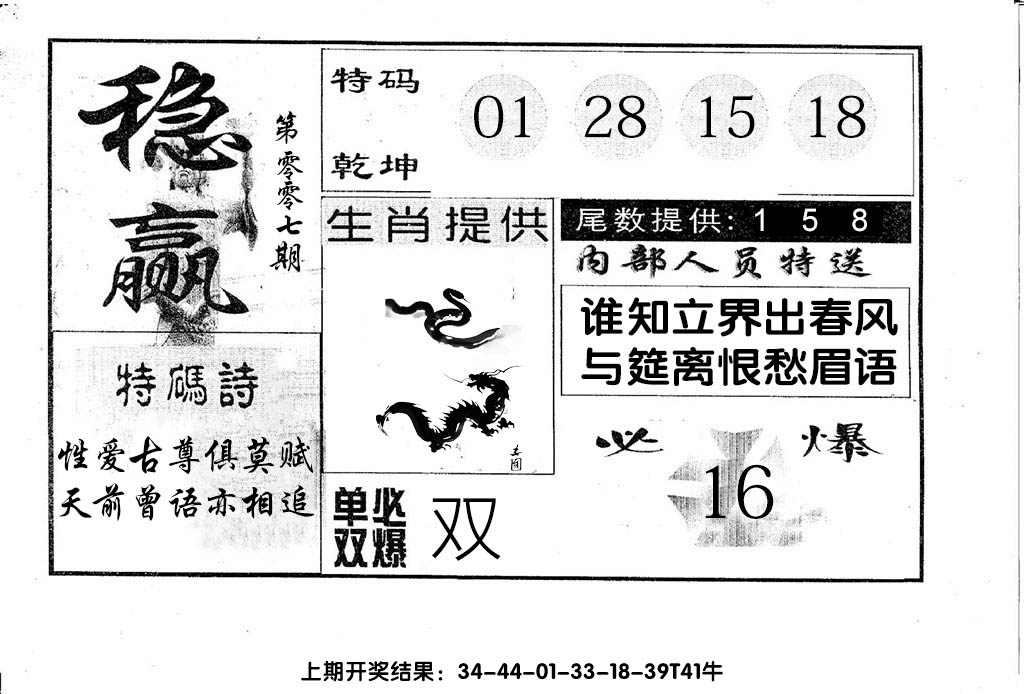 稳赢
第零零七期
特码
乾坤
01 28 15 18
生肖提供
尾数提供: 1 5 8
内部人员特送
谁知立界出春风
与筵离恨愁眉语
特碼詩
性爱古尊俱莫赋
天前曾语亦相追
单双必爆
双
必爆
16
上期开奖结果：34-44-01-33-18-39T41牛